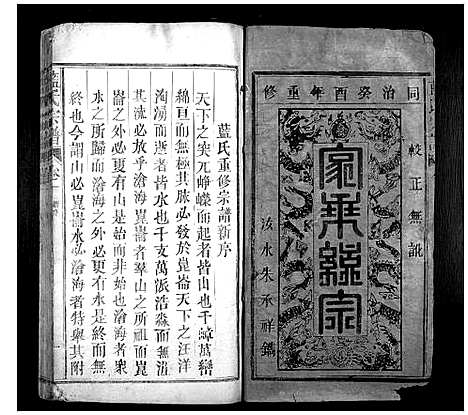 同治癸酉年重修
校正無訛
家乘統宗
汝水朱承祥鐫
藍氏重修宗譜新序
天下之突兀崢嶸而起者皆山也千嶂萬巒
綿亘而無極其脉必發於崑崙天下之汪洋
洶湧而流者皆水也千支萬派浩淼而無涯
其流必放乎滄海崑崙者羣山之所祖而崑
崙之外必更有山是始而非始也滄海者衆
水之所歸而滄海之外必更有水是終而無
終也今謂山必崑崙水必滄海者特與其附